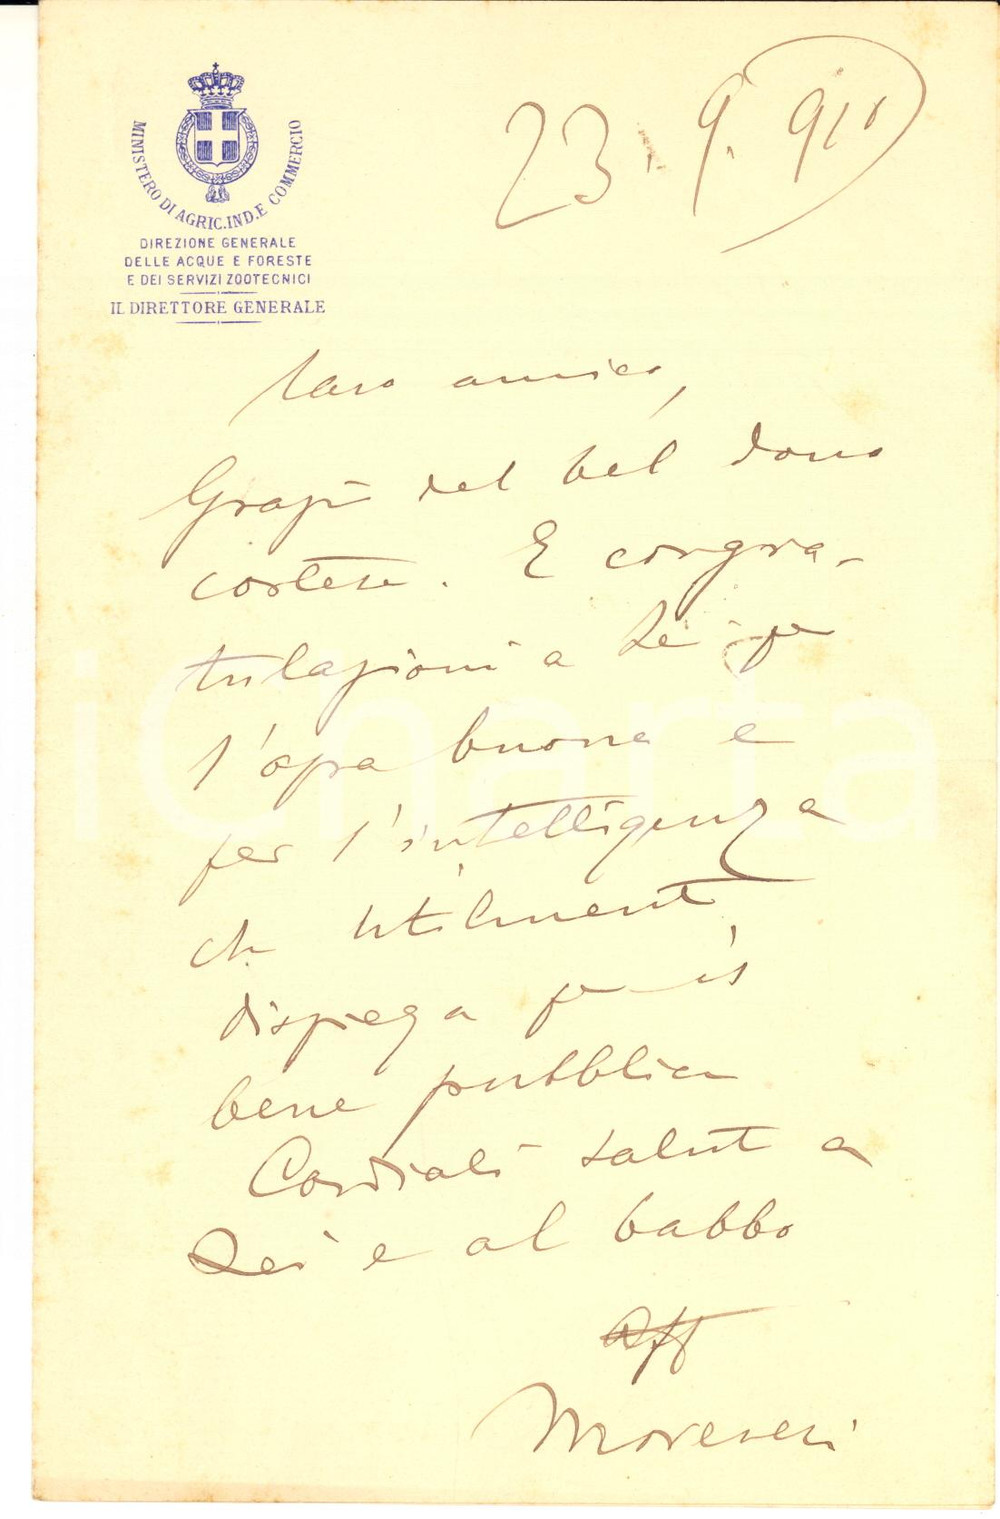 MINISTERO DI AGRIC. IND. E COMMERCIO
DIREZIONE GENERALE
DELLE ACQUE E FORESTE
E DEI SERVIZI ZOOTECNICI
IL DIRETTORE GENERALE
23.9.910
Caro amico,
Grazie del bel dono
cortese. E congra-
tulazioni a Lei per
l'opra buona e
per l'intelligenza
che utilmente
dispiega per il
bene pubblico
Cordiali saluti a
Lei e al babbo
Aff
iCharta